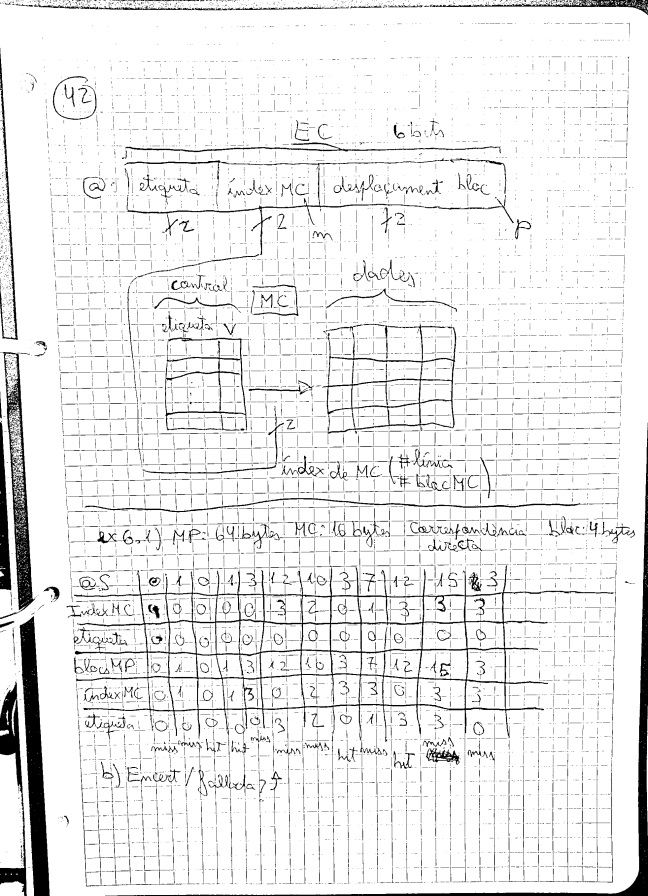 42
EC 6 bits
@: etiqueta índex MC desplaçament bloc
2 2 m 2 p
control MC dades
etiqueta V
2
índex de MC (#línia
#bloc MC)
ex 6.1) MP: 64 bytes MC: 16 bytes Correspondència directa bloc: 4 bytes
@S 0 1 0 1 3 12 10 3 7 12 15 3
Index MC 0 0 0 0 3 2 0 1 3 3 3
etiqueta 0 0 0 0 0 0 0 0 0 0 0 0
blocs MP 0 1 0 1 3 12 10 3 7 12 15 3
índex MC 0 1 0 1 3 0 2 3 3 0 3 3
etiqueta 0 0 0 0 0 3 2 0 1 3 3 0
miss miss hit hit miss miss miss hit miss hit miss miss
b) Encert / fallada?